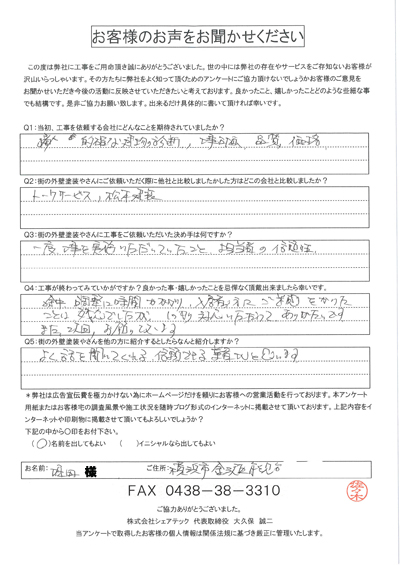 お客様のお声をお聞かせください
この度は弊社に工事をご用命頂き誠にありがとうございました。世の中には弊社の存在やサービスをご存知ないお客様が
沢山いらっしゃいます。その方たちに弊社をよく知って頂くためのアンケートにご協力頂けないでしょうかお客様のご意見を
お聞かせいただき今後の活動に反映させていただきたいと考えております。良かったこと、嬉しかったことどのような些細な事
でも結構です。是非ご協力お願い致します。出来るだけ具体的に書いて頂ければ幸いです。
Q1:当初、工事を依頼する会社にどんなことを期待されていましたか?
的確な建物の診断、 品質、価格
Q2:街の外壁塗装やさんにご依頼いただく際に他社と比較しましたかした方はどこの会社と比較しましたか?
トータルサービス、
Q3:街の外壁塗装やさんに工事をご依頼いただいた決め手は何ですか?
一度、工事を見積いただいていたこと、担当者の信頼性
Q4:工事が終わってみていかがですか?良かった事・嬉しかったことを忌憚なく頂戴出来ましたら幸いです。
途中 調整に時間がかかり、
ことは 対応いただいて ありがたいです
また、次回、お願いします
Q5:街の外壁塗装やさんを他の方に紹介するとしたらなんと紹介しますか?
よく話を聞いてくれる、信頼できる業者だと思います
*弊社は広告宣伝費を極力かけない為にホームページだけを頼りにお客様への営業活動を行っております。本アンケート
用紙またはお客様宅の調査風景や施工状況を随時ブログ形式のインターネットに掲載させて頂いております。上記内容をイ
ンターネットや印刷物に掲載させて頂いてもよろしいでしょうか?
下記の中から〇印をお付け下さい。
(〇)名前を出してもよい ( )イニシャルなら出してもよい
お名前: 様 ご住所: 横浜市金沢区
FAX 0438-38-3310
ご協力ありがとうございました。
株式会社シェアテック 代表取締役 大久保 誠二
当アンケートで取得したお客様の個人情報は関係法規に基づき厳正に管理いたします。